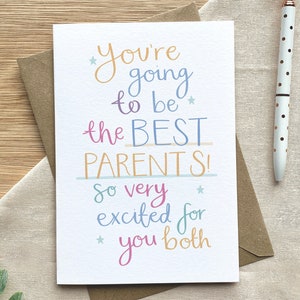 You're
going
to be
the BEST
PARENTS!
so very
excited for
you both